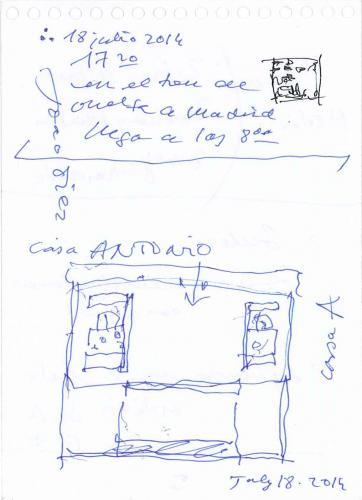 18 julio 2014
17 20
en el tren de
vuelta a Madrid.
llego a las 8
casa ANTONIO
casa A
July 18. 2014